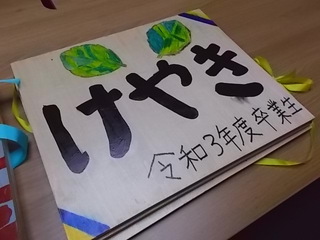 けやき
令和3年度卒業生